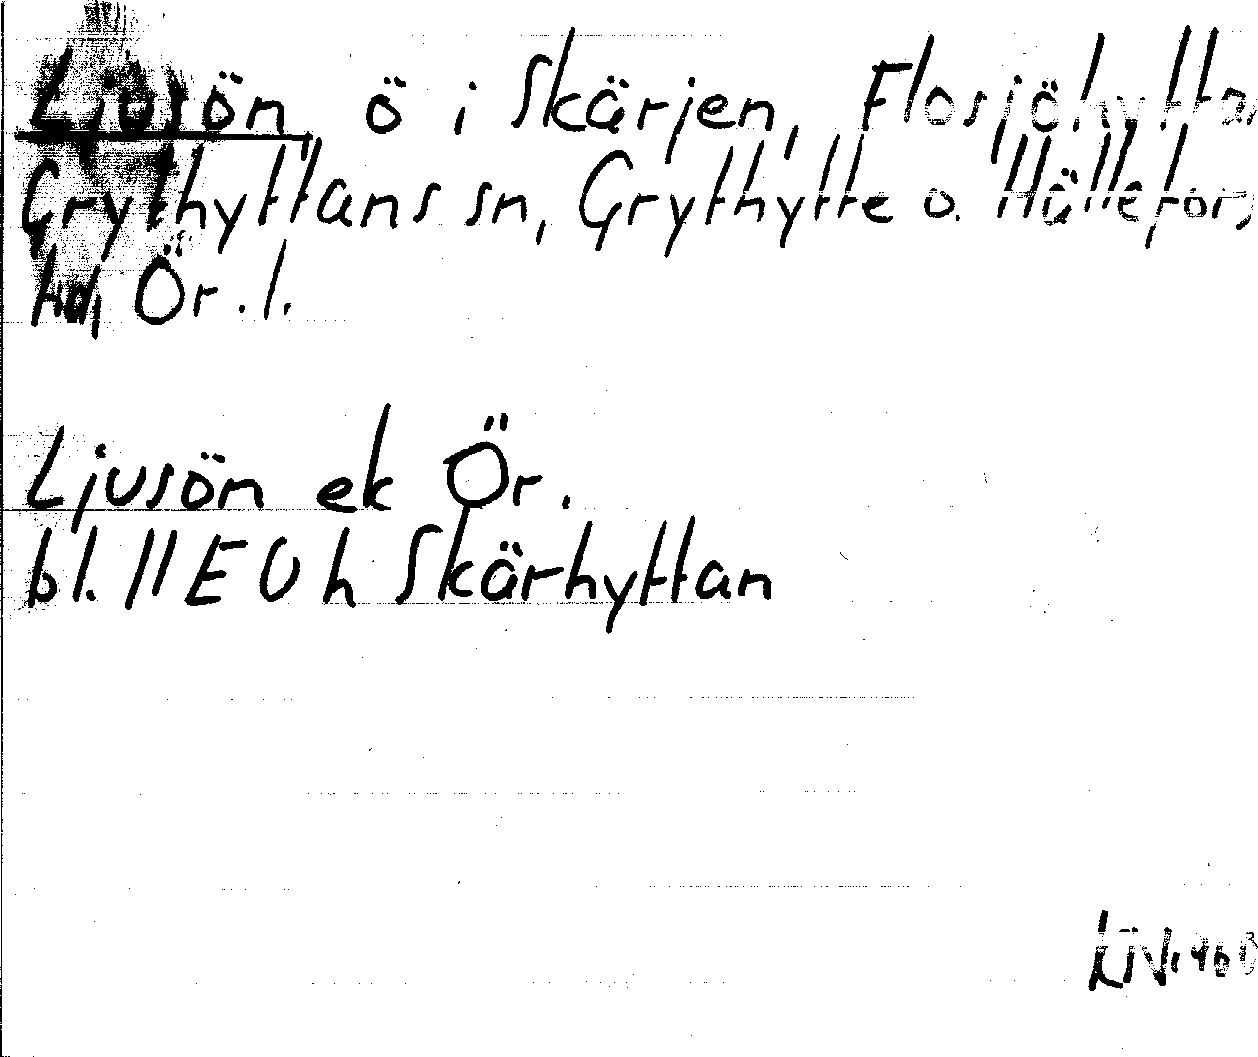 Ljusön, ö i Skärjen, Flosjöhyttan,
Grythyttans sn, Grythytte o. Hällefors
hd, Ör. l.
Ljusön ek Ör.
bl. 11 EU h Skärhyttan